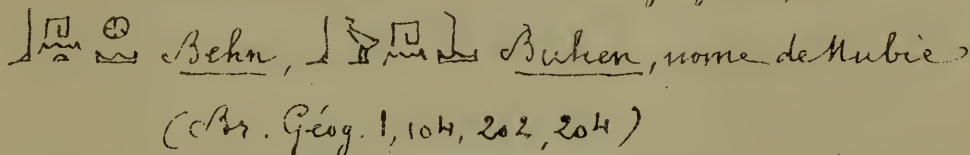 Behn, Buhen, nome de Nubie
(Br. Géog. 1, 104, 202, 204)